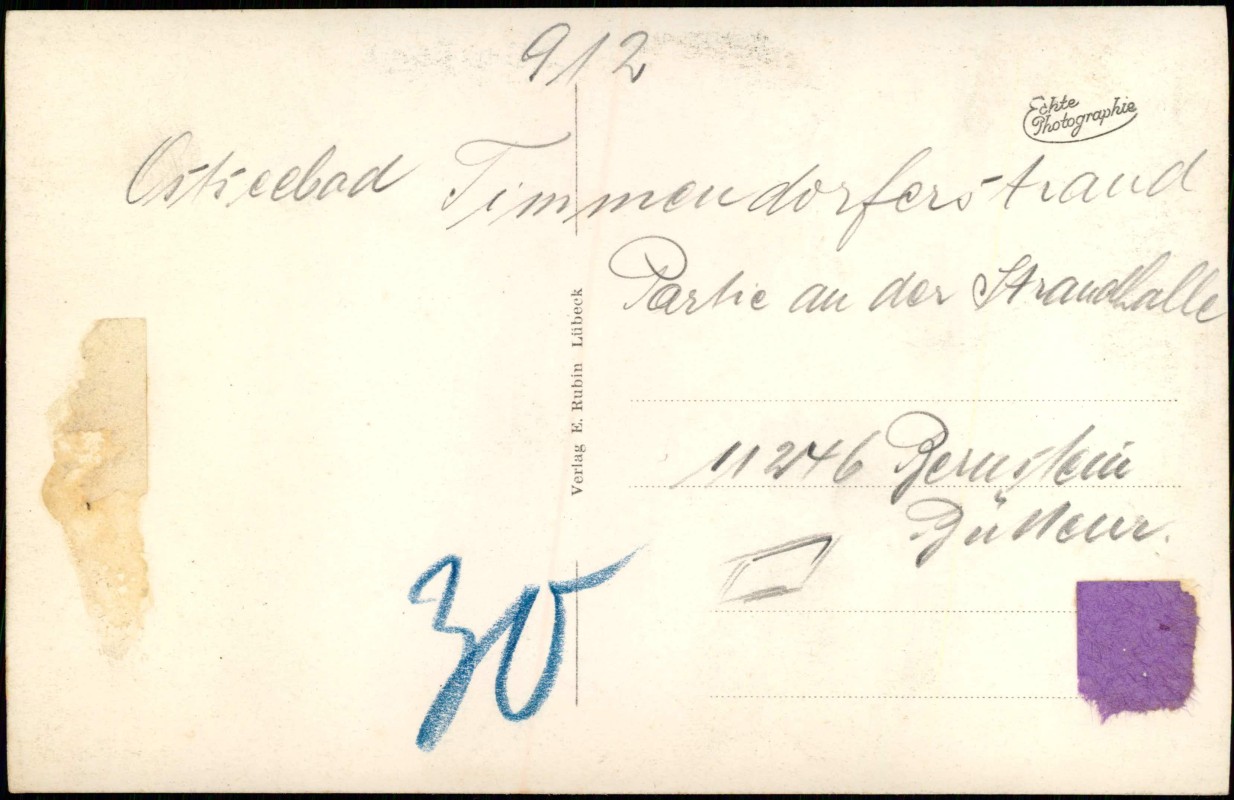 912
Echte
Photographie
Ostseebad Timmendorferstrand
Partie an der Strandhalle
Verlag E. Rubin Lübeck
11246 Bernstein
30